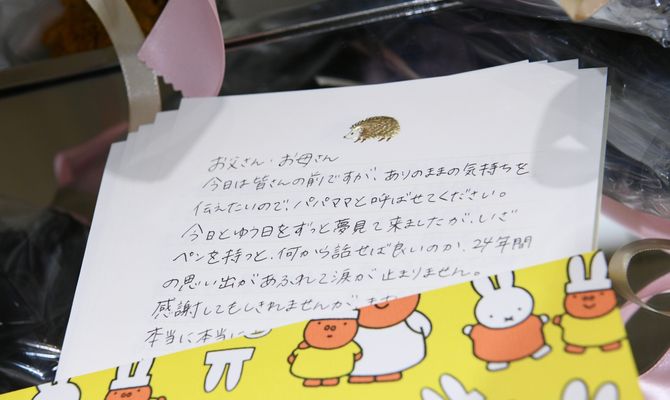 お父さん・お母さん
今日は皆さんの前ですが、ありのままの気持ちを
伝えたいので、パパママと呼ばせてください。
今日とゆう日をずっと夢見て来ましたが、いざ
ペンを持つと、何から話せば良いのか、24年間
の思い出があふれて涙が止まりません。
感謝してもしきれませんが、まず
本当に本当に